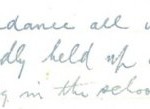 dance all
dly held up
g in the schoo